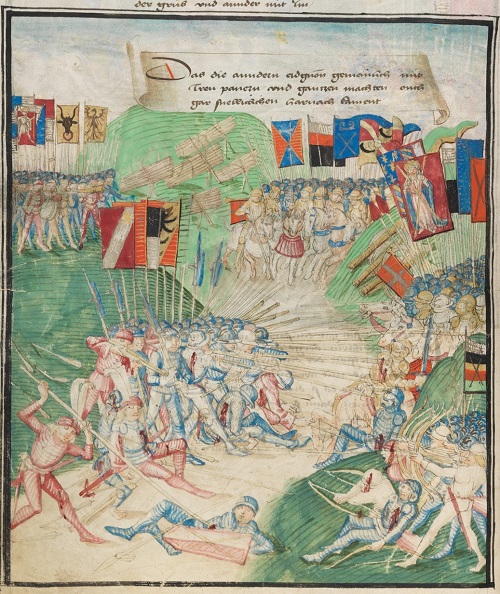 der grus vnd annder mit im
Das die anndern eidgnon gemeinlich mit
Iren panern vnd gantzen machten ouch
gar harnach kament